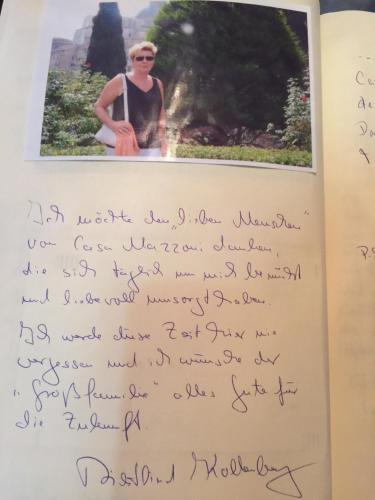 Ich möchte den „lieben Menschen"
von Casa Mazzoni danken,
die sich täglich um mich bemüht
und liebevoll umsorgt haben.
Ich werde diese Zeit hier nie
vergessen und ich wünsche der
„Großfamilie" alles Gute für
die Zukunft.
Kollenberg